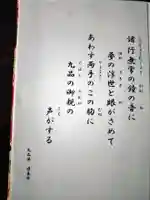 諸行無常の鐘の音に
夢の浮世と眼がさめて
あわす両手のこの胸に
九品の御親の
声がする